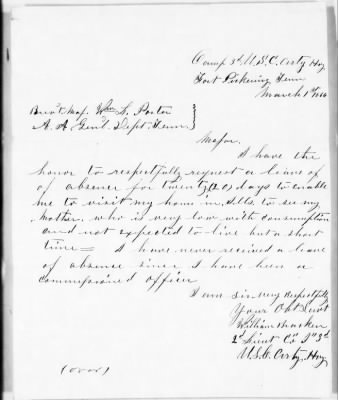 Camp 3d U.S.C. Arty Hvy
Fort Pickering Tenn
March 1st 1866
Brev't Maj. Wm L. Porter
A. A. Genl. Dept. Tenn
Major.
I have the
honor to respectfully request a leave of
of absence for twenty (20) days to enable
me to visit my home in Ills to see my
Mother, who is very low with consumption
and not expected to live but a short
time = I have never received a leave
of absence since I have been a
commissioned officer
I am sir very respectfully
Your Obt Servt
William
2d Lieut Co I 3d
U.S.C. Arty. Hvy
(over)